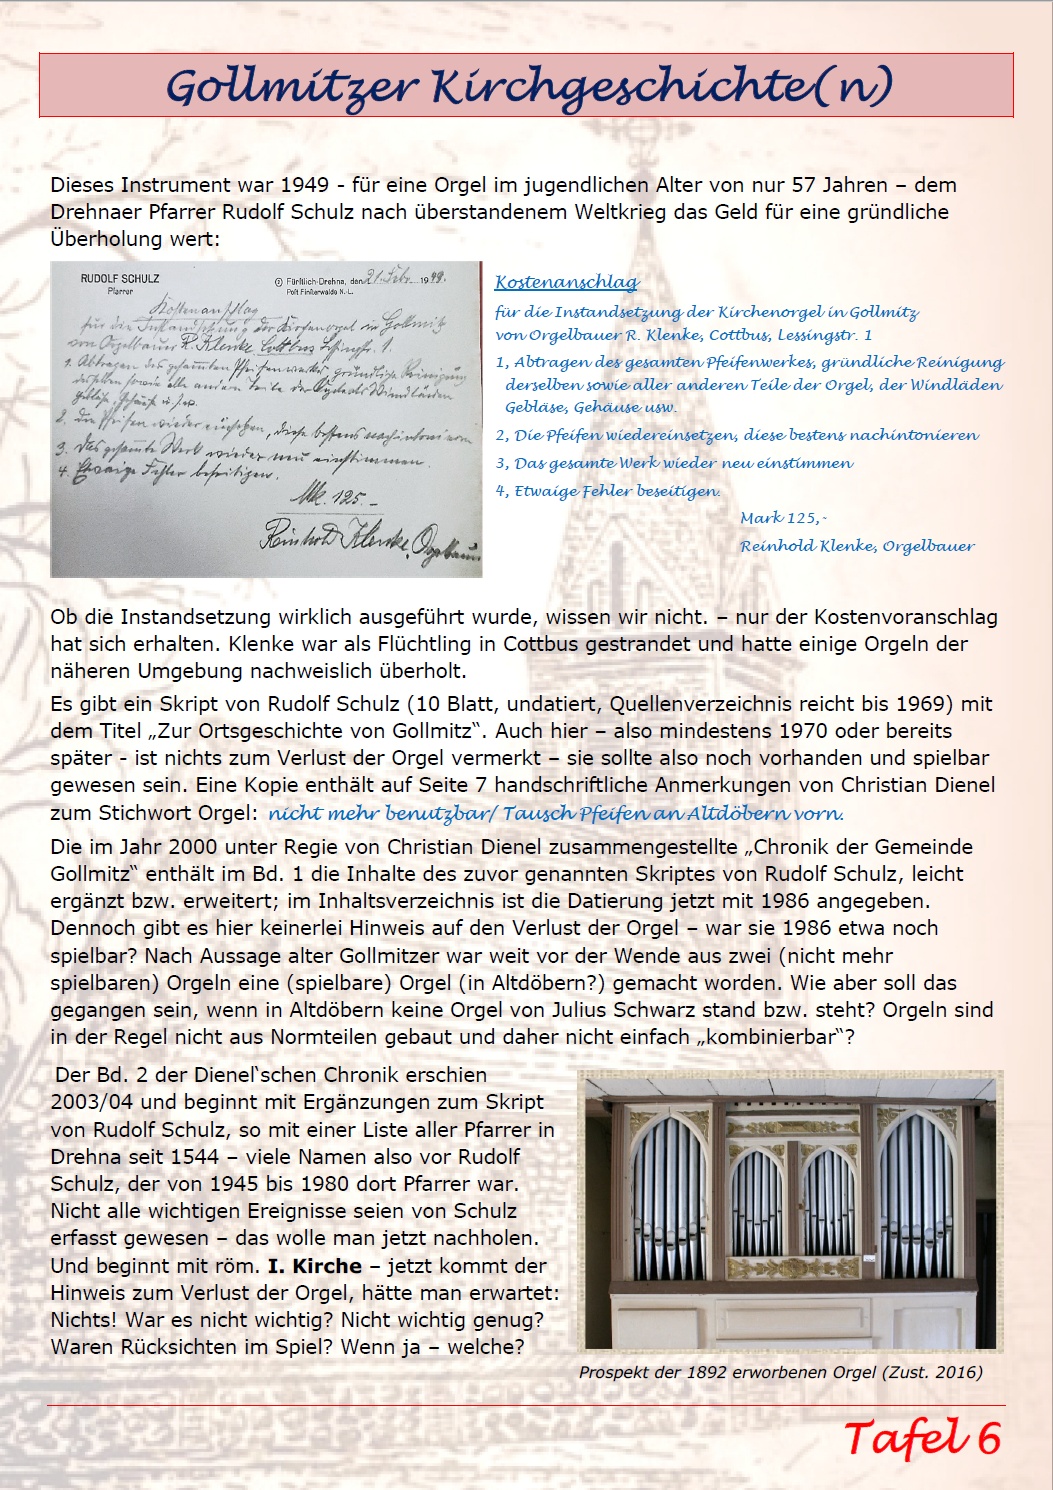 Gollmitzer Kirchgeschichte(n)
Dieses Instrument war 1949 - für eine Orgel im jugendlichen Alter von nur 57 Jahren – dem
Drehnaer Pfarrer Rudolf Schulz nach überstandenem Weltkrieg das Geld für eine gründliche
Überholung wert:
RUDOLF SCHULZ
Pfarrer
Fürstlich-Drehna, den 21. Febr. 1949.
Post Finsterwalde N.-L.
Kostenanschlag
für die Instandsetzung der Kirchenorgel in Gollmitz
von Orgelbauer R. Klenke, Cottbus, Lessingstr. 1.
1. Abtragen des gesamten Pfeifenwerkes, gründliche Reinigung
derselben sowie aller anderen Teile der Orgel, der Windläden
Gebläse, Gehäuse u.s.w.
2. Die Pfeifen wieder einsetzen, diese bestens nachintonieren
3. Das gesamte Werk wieder neu einstimmen.
4. Etwaige Fehler beseitigen.
Mk. 125.-
Reinhold Klenke, Orgelbauer
Kostenanschlag
für die Instandsetzung der Kirchenorgel in Gollmitz
von Orgelbauer R. Klenke, Cottbus, Lessingstr. 1
1, Abtragen des gesamten Pfeifenwerkes, gründliche Reinigung
derselben sowie aller anderen Teile der Orgel, der Windläden
Gebläse, Gehäuse usw.
2, Die Pfeifen wiedereinsetzen, diese bestens nachintonieren
3, Das gesamte Werk wieder neu einstimmen
4, Etwaige Fehler beseitigen.
Mark 125,-
Reinhold Klenke, Orgelbauer
Ob die Instandsetzung wirklich ausgeführt wurde, wissen wir nicht. – nur der Kostenvoranschlag
hat sich erhalten. Klenke war als Flüchtling in Cottbus gestrandet und hatte einige Orgeln der
näheren Umgebung nachweislich überholt.
Es gibt ein Skript von Rudolf Schulz (10 Blatt, undatiert, Quellenverzeichnis reicht bis 1969) mit
dem Titel „Zur Ortsgeschichte von Gollmitz“. Auch hier – also mindestens 1970 oder bereits
später - ist nichts zum Verlust der Orgel vermerkt – sie sollte also noch vorhanden und spielbar
gewesen sein. Eine Kopie enthält auf Seite 7 handschriftliche Anmerkungen von Christian Dienel
zum Stichwort Orgel: nicht mehr benutzbar/ Tausch Pfeifen an Altdöbern vorn.
Die im Jahr 2000 unter Regie von Christian Dienel zusammengestellte „Chronik der Gemeinde
Gollmitz“ enthält im Bd. 1 die Inhalte des zuvor genannten Skriptes von Rudolf Schulz, leicht
ergänzt bzw. erweitert; im Inhaltsverzeichnis ist die Datierung jetzt mit 1986 angegeben.
Dennoch gibt es hier keinerlei Hinweis auf den Verlust der Orgel – war sie 1986 etwa noch
spielbar? Nach Aussage alter Gollmitzer war weit vor der Wende aus zwei (nicht mehr
spielbaren) Orgeln eine (spielbare) Orgel (in Altdöbern?) gemacht worden. Wie aber soll das
gegangen sein, wenn in Altdöbern keine Orgel von Julius Schwarz stand bzw. steht? Orgeln sind
in der Regel nicht aus Normteilen gebaut und daher nicht einfach „kombinierbar“?
Der Bd. 2 der Dienel‘schen Chronik erschien
2003/04 und beginnt mit Ergänzungen zum Skript
von Rudolf Schulz, so mit einer Liste aller Pfarrer in
Drehna seit 1544 – viele Namen also vor Rudolf
Schulz, der von 1945 bis 1980 dort Pfarrer war.
Nicht alle wichtigen Ereignisse seien von Schulz
erfasst gewesen – das wolle man jetzt nachholen.
Und beginnt mit röm. I. Kirche – jetzt kommt der
Hinweis zum Verlust der Orgel, hätte man erwartet:
Nichts! War es nicht wichtig? Nicht wichtig genug?
Waren Rücksichten im Spiel? Wenn ja – welche?
Prospekt der 1892 erworbenen Orgel (Zust. 2016)
Tafel 6